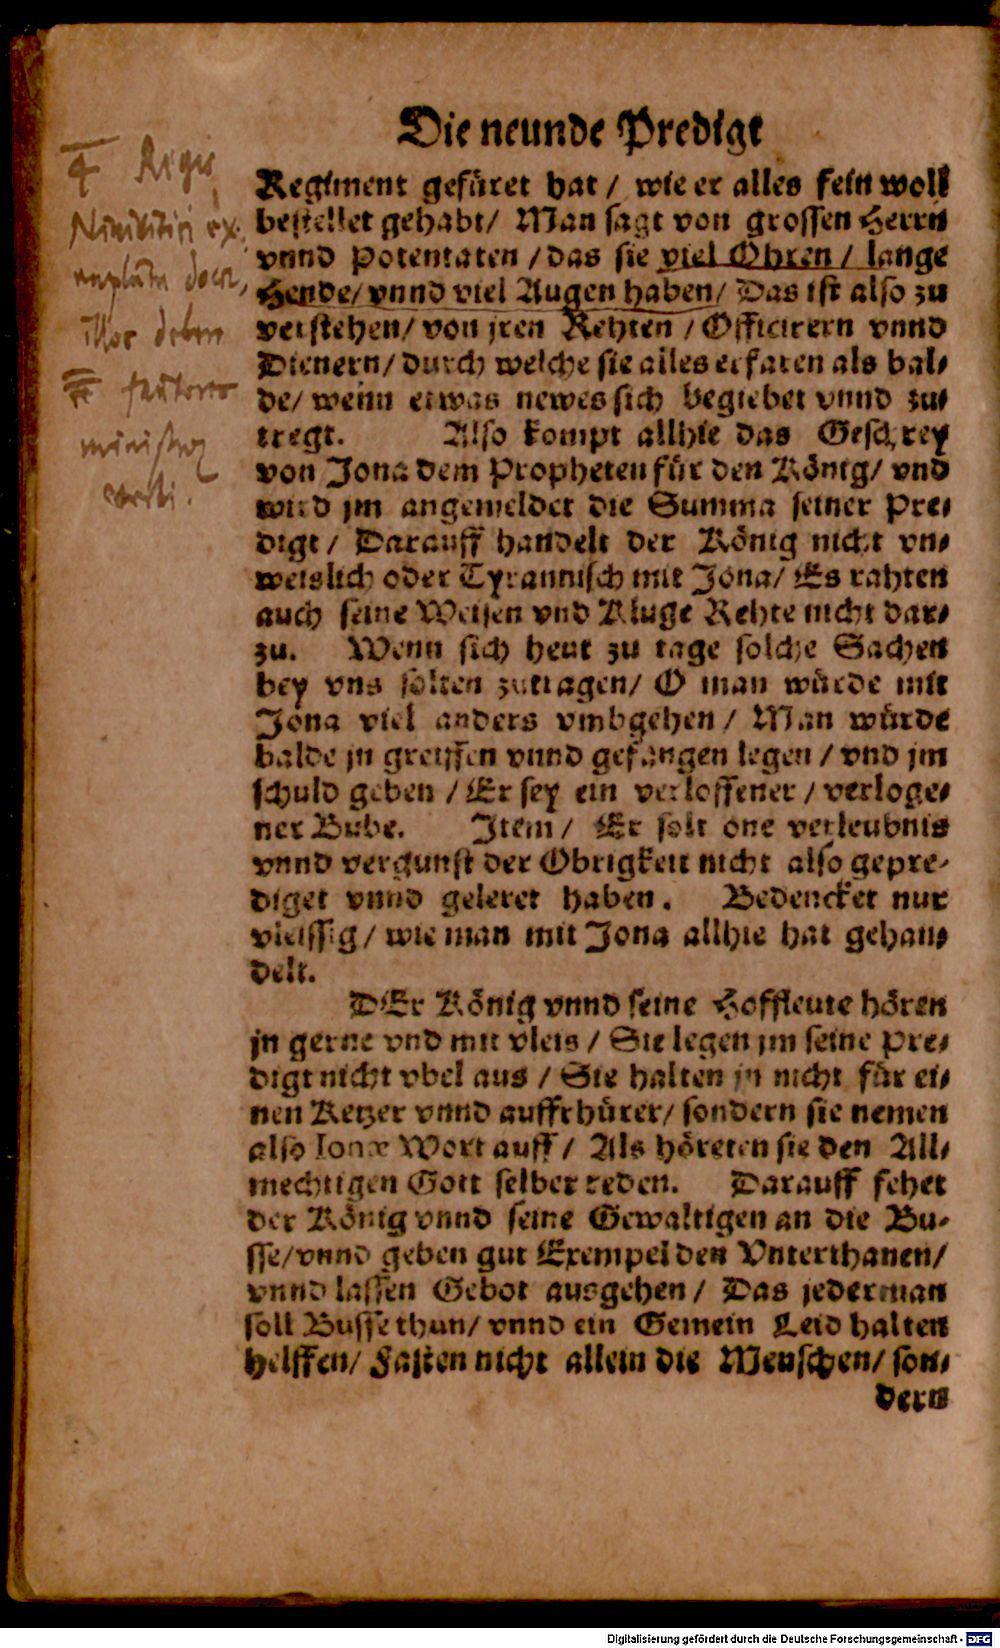 Die neunde Predigt
Regiment gefüret hat / wie er alles fein woll
bestellet gehabt/ Man sagt von grossen Herrn
vnnd Potentaten / das sie viel Ohren / lange
Hende/ vnnd viel Augen haben/ Das ist also zu
verstehen/ von jren Rehten / Officirern vnnd
Dienern/ durch welche sie alles erfaren als bal-
de/ wenn etwas newes sich begiebet vnnd zu-
tregt. Also kompt allhie das Geschrey
von Jona dem Propheten für den König/ vnd
wird jm angemeldet die Summa seiner Pre-
digt / Darauff handelt der König nicht vn-
weislich oder Tyrannisch mit Jona/ Es rahten
auch seine Weisen vnd Kluge Rehte nicht dar-
zu. Wenn sich heut zu tage solche Sachen
bey vns solten zutragen/ O man würde mit
Jona viel anders vmbgehen / Man würde
balde jn greiffen vnnd gefangen legen / vnd jm
schuld geben / Er sey ein verloffener / verloge-
ner Bube. Item / Er solt one verleubnis
vnnd vergunst der Obrigkeit nicht also gepre-
diget vnnd geleret haben. Bedencket nur
vleissig / wie man mit Jona allhie hat gehan-
delt.
DEr König vnnd seine Hoffleute hören
jn gerne vnd mit vleis / Sie legen jm seine Pre-
digt nicht vbel aus / Sie halten jn nicht für ei-
nen Ketzer vnnd auffrhürer/ sondern sie nemen
also Ionæ Wort auff / Als höreten sie den All-
mechtigen Gott selber reden. Darauff fehet
der König vnnd seine Gewaltigen an die Bu-
sse/ vnnd geben gut Exempel den Vnterthanen/
vnnd lassen Gebot ausgehen / Das jederman
soll Busse thun/ vnnd ein Gemein Leid halten
helffen/ Fasten nicht allein die Menschen/ son-
dern
4 Regis
Ninivitici ex-
emplum doce,
illos debere
ministros
Christi.
Digitalisierung gefördert durch die Deutsche Forschungsgemeinschaft - DFG